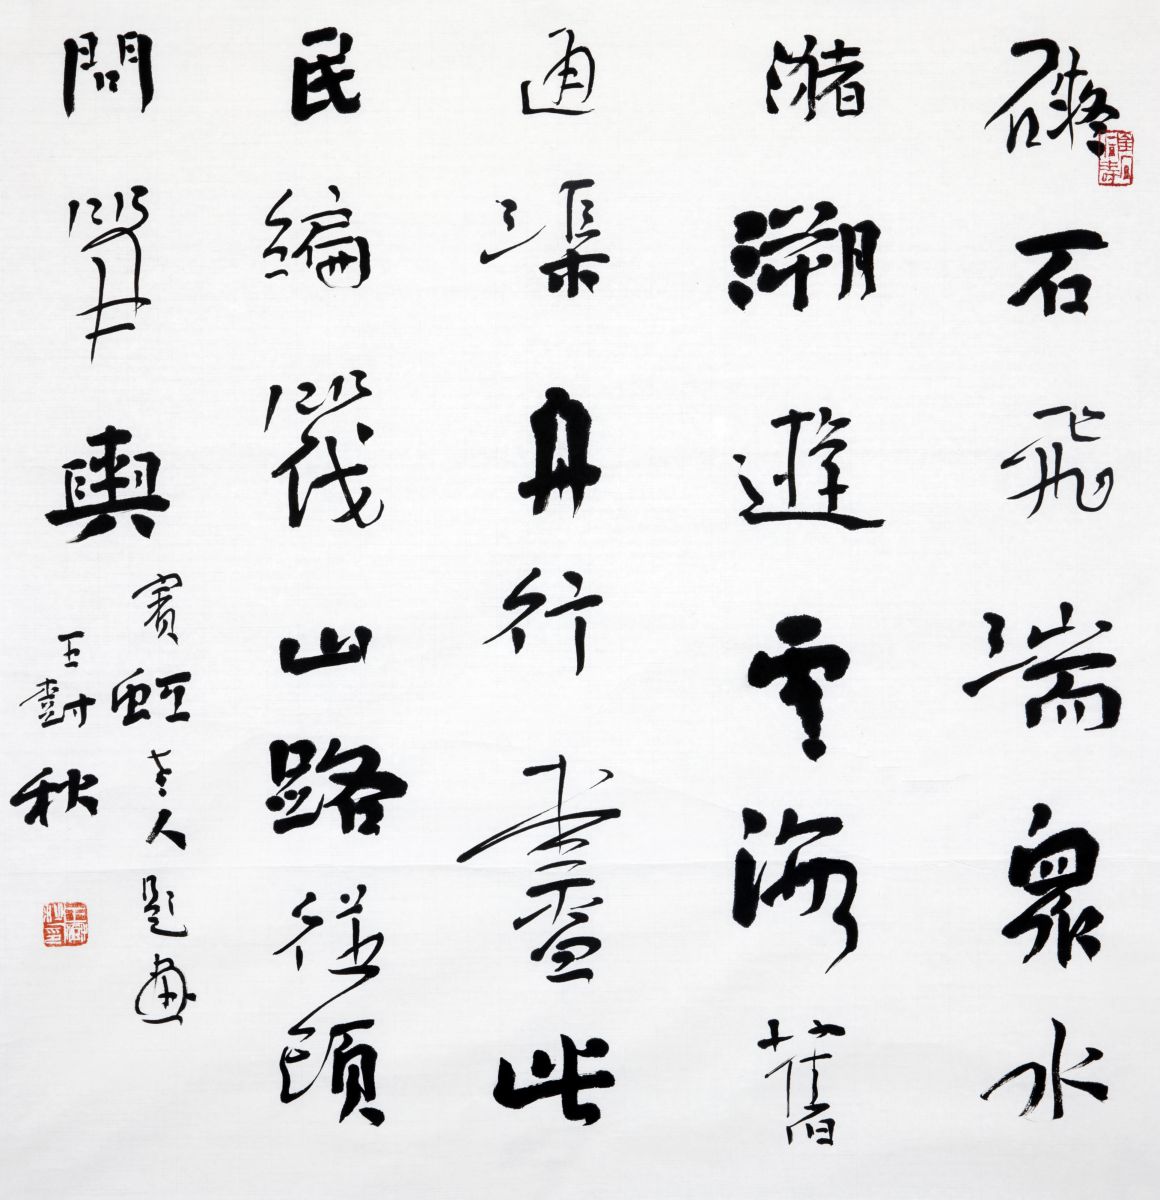 礙石飛湍眾水
潴溯遊雲海舊
通渠舟行盡此
民編筏山路從頭
問筓輿
賓虹老人題畫
王對秋